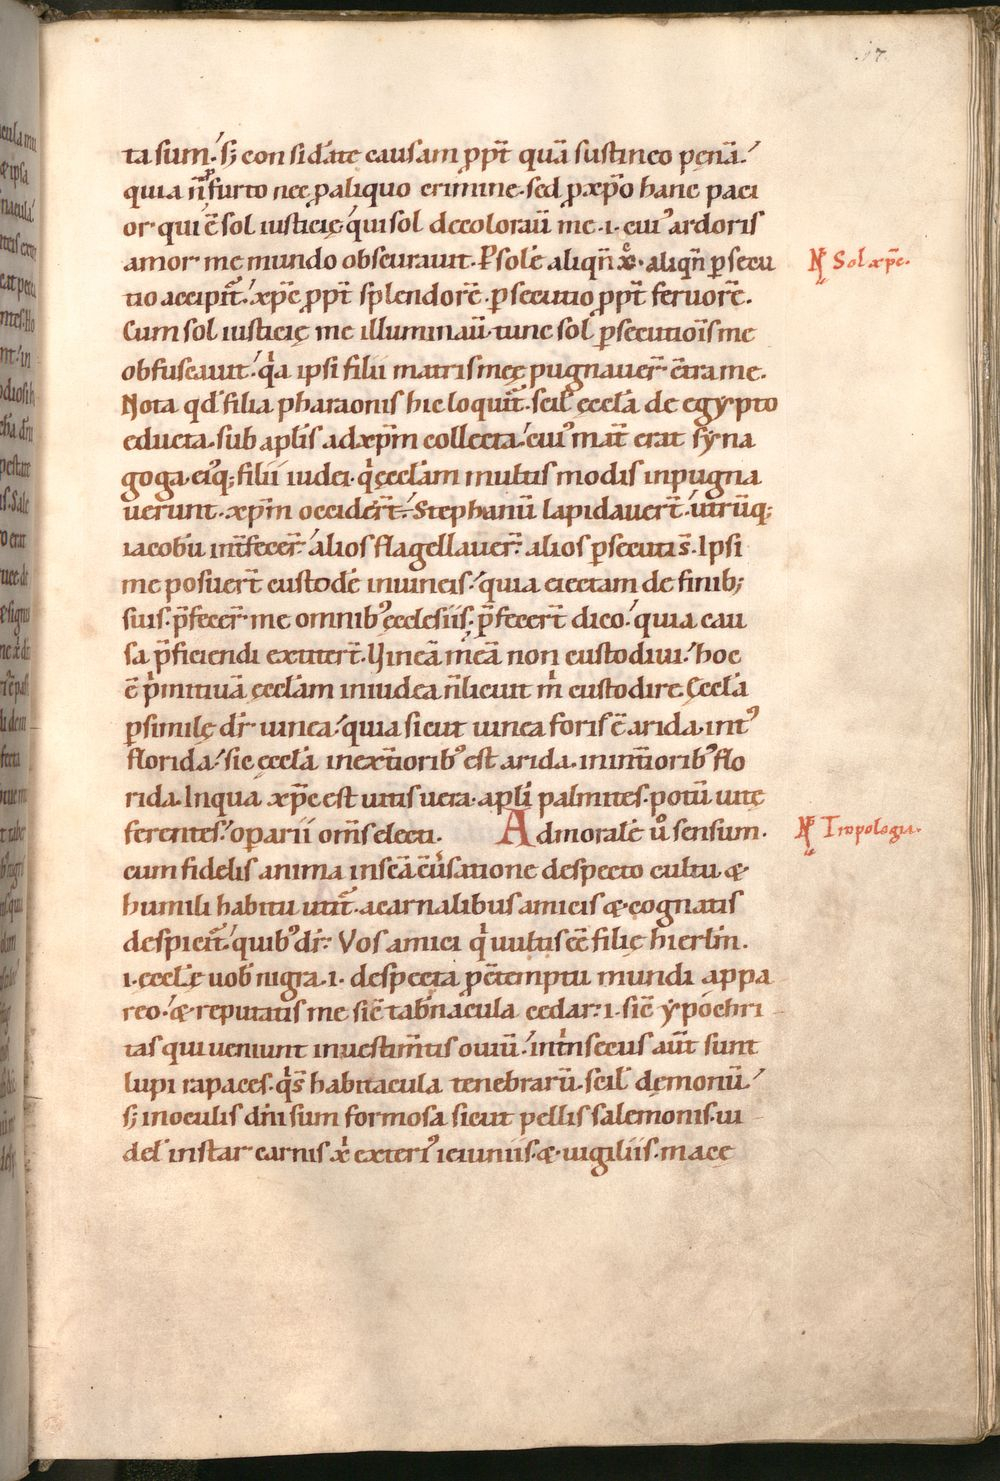 17.
ta sum. s; considãte causam ꝓpt̃ quã sustineo penã.
quia ñ ꝓ furto nec ꝓ aliquo crimine. sed ꝓ xp̃o hanc paci
or. qui ẽ sol iusticię. qui sol decolorauĩ me .i. cuiꝰ ardoris
amor me mundo obscurauit. P̱ solẽ aliqñ x̃c. aliqñ ꝑsecu
tio accipit̃. xp̃c ꝓpt̃ splendorẽ. ꝑsecutio ꝓpt̃ feruorẽ.
Cum sol iusticię me illuminaũ. tunc sol ꝑsecutiõis me
obfuscauit. q̇a ipsi filii matris męę pugnauer̃ c̃tra me.
Nota qd̃ filia pharaonis hic loquit̃. scil̃ ęccl̃a de egypto
educta. sub apl̃is ad xp̃m collecta. cuiꝰ mat̃ erat syna
goga. eiꝰq; filii iudei. q̇ ęccl̃am multis modis inpugna
uerunt. xp̃m occider̃t. Stephanũ lapidauer̃t. utrũq;
iacobũ int̃fecer̃. alios flagellauer̃. alios ꝑsecuti s̃. Ipsi
me posuer̃t custodẽ in uineis. quia eiectam de finib;
suis. p̃fecer̃ me omnibꝰ ęcclesiis. p̃fecer̃t dico. quia cau
sa p̃ficiendi extiter̃t. Vineã meã non custodiui. hoc
ẽ ṗmitiuã ęccl̃am in iudea ñ licuit ṁ custodire. Ęccl̃a
ꝑ similę dr̃ uinea. quia sicut uinea foris ẽ arida. intꝰ
florida. sic ęccl̃a in ext̃ioribꝰ est arida. in int̃ioribꝰ flo
rida. In qua xp̃c est uitis uera. apl̃i palmites. potũ uitę
ferentes. oꝑarii om̃s electi. Ad moralẽ ů sensum.
cum fidelis anima in sc̃a c̃uersatione despecto cultu &
humili habitu utit̃. a carnalibus amicis & cognatis
despicit̃. quibꝰ dr̃. Vos amici q̇ uultis ẽẽ filię hierlm̃.
.i. ęccl̃ę uob̃ nigra .i. despecta ꝓ c̃temptu mundi appa
reo. & reputatis me sic̃ tab̃nacula cedar. i. sic̃ ypochri
tas qui ueniunt in uestim̃tis ouiũ. inṫnsecus aũt sunt
lupi rapaces. q̇ s̃ habitacula tenebrarũ. scil̃ demonũ.
s; in oculis dñi sum formosa sicut pellis salemonis. ui
del̃ instar carnis ẋ exteriꝰ ieiuniis. & uigiliis. mace
N̄ Sol xp̃c.
N̄ Tropologia.